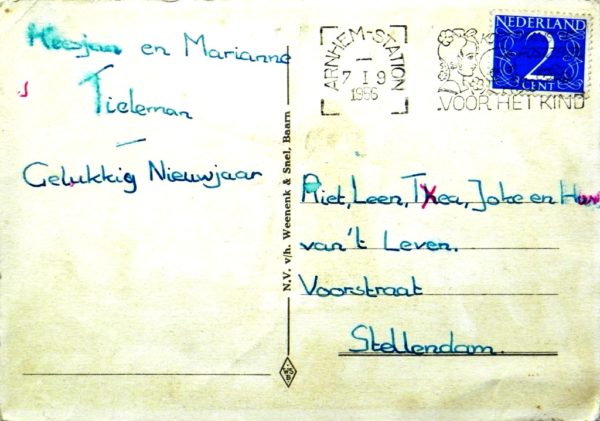 Keesjan en Marianne
Tieleman
Gelukkig Nieuwjaar
N.V. v/h. Weenenk & Snel, Baarn
ARNHEM-STATION
7 I 9
1956
VOOR HET KIND
NEDERLAND
2
CENT
Riet, Leen, Thea, Joke en
van't Leven.
Voorstraat
Stellendam.